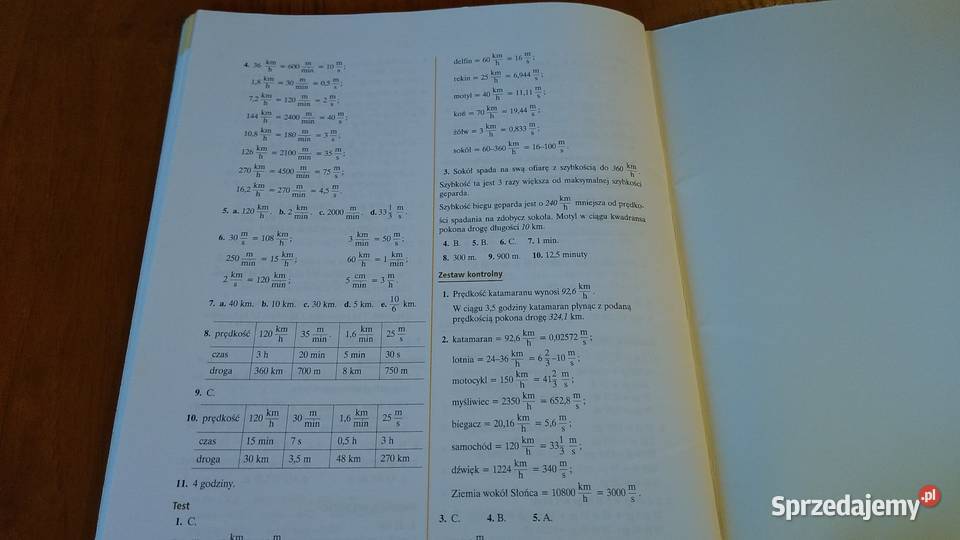 4. 36 km/h = 600 m/min = 10 m/s;
1,8 km/h = 30 m/min = 0,5 m/s;
7,2 km/h = 120 m/min = 2 m/s;
144 km/h = 2400 m/min = 40 m/s;
10,8 km/h = 180 m/min = 3 m/s;
126 km/h = 2100 m/min = 35 m/s;
270 km/h = 4500 m/min = 75 m/s;
16,2 km/h = 270 m/min = 4,5 m/s.
5. a. 120 km/h. b. 2 km/min. c. 2000 m/min d. 33 1/3 m/s.
6. 30 m/s = 108 km/h; 3 km/min = 50 m/s;
250 m/min = 15 km/h; 60 km/h = 1 km/min;
2 km/s = 120 km/min; 5 cm/min = 3 m/h.
7. a. 40 km. b. 10 km. c. 30 km. d. 5 km. e. 10/6 km.
8. prędkość 120 km/h 35 m/min. 1,6 km/min 25 m/s
czas 3 h 20 min 5 min 30 s
droga 360 km 700 m 8 km 750 m
9. C.
10. prędkość 120 km/h 30 m/min 1,6 km/min 25 m/s
czas 15 min 7 s 0,5 h 3 h
droga 30 km 3,5 m 48 km 270 km
11. 4 godziny.
Test
1. C.
km m
delfin = 60 km/h = 16 m/s;
rekin = 25 km/h = 6,944 m/s;
motyl = 40 km/h = 11,11 m/s;
koń = 70 km/h = 19,44 m/s;
żółw = 3 km/h = 0,833 m/s;
sokół = 60–360 km/h = 16–100 m/s.
3. Sokół spada na swą ofiarę z szybkością do 360 km/h
Szybkość ta jest 3 razy większa od maksymalnej szybkości
geparda.
Szybkość biegu geparda jest o 240 km/h mniejsza od prędko-
ści spadania na zdobycz sokoła. Motyl w ciągu kwadransa
pokona drogę długości 10 km.
4. B. 5. B. 6. C. 7. 1 min.
8. 300 m. 9. 900 m. 10. 12,5 minuty
Zestaw kontrolny
1. Prędkość katamaranu wynosi 92,6 km/h.
W ciągu 3,5 godziny katamaran płynąc z podaną
prędkością pokona drogę 324,1 km.
2. katamaran = 92,6 km/h = 0,02572 m/s;
lotnia = 24–36 km/h = 6 2/3–10 m/s;
motocykl = 150 km/h = 41 2/3 m/s;
myśliwiec = 2350 km/h = 652,8 m/s;
biegacz = 20,16 km/h = 5,6 m/s;
samochód = 120 km/h = 33 1/3 m/s;
dźwięk = 1224 km/h = 340 m/s;
Ziemia wokół Słońca = 10800 km/h = 3000 m/s.
3. C. 4. B. 5. A.
m
Sprzedajemy.pl